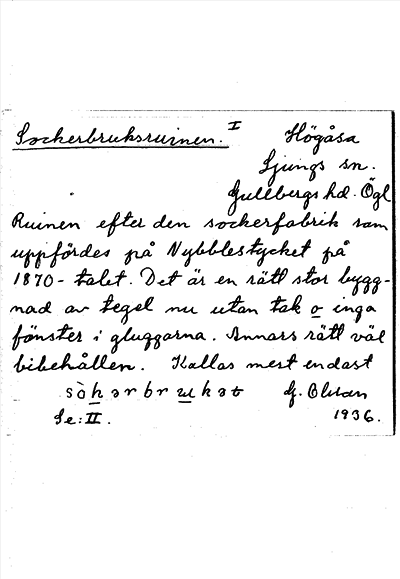 Sockerbruksruinen. I Högåsa
Ljungs sn.
Gullbergs hd. Ögl
Ruinen efter den sockerfabrik som
uppfördes på Nybblestycket på
1870-talet. Det är en rätt stor bygg-
nad av tegel nu utan tak o inga
fönster i gluggarna. Annars rätt väl
bibehållen. Kallas mest endast
sòkərbrukət G.
Se: II. 1936.